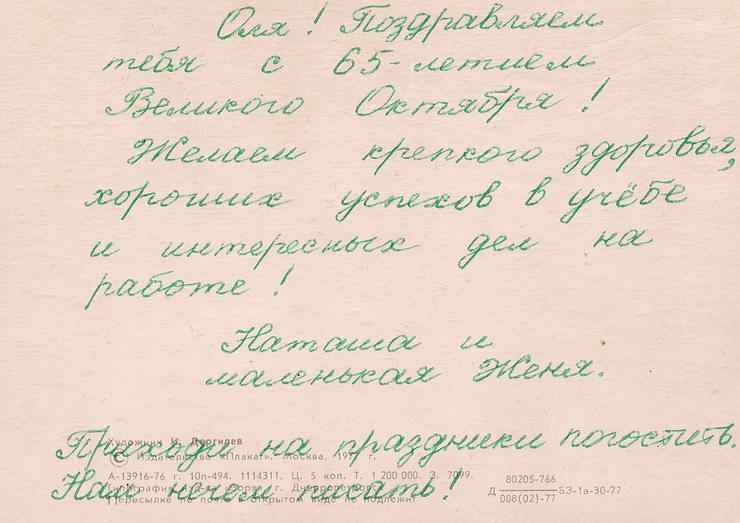 Оля! Поздравляем
тебя с 65-летием
Великого Октября!
Желаем крепкого здоровья,
хороших успехов в учёбе
и интересных дел на
работе!
Наташа и
маленькая Женя.
Приходи на праздники погостить.
Художник И.
© Издательство «Плакат». Москва, 197 г.
А-13916-76 г. 10п-494. 1114311. Ц. 5 коп. Т. 1 200 000. З. 7099.
Нам нечем писать!
Типография г. Днепропетровск
Пересылке по почте в открытом виде не подлежит
Д 80205-766 БЗ-1а-30-77
088(02)-77